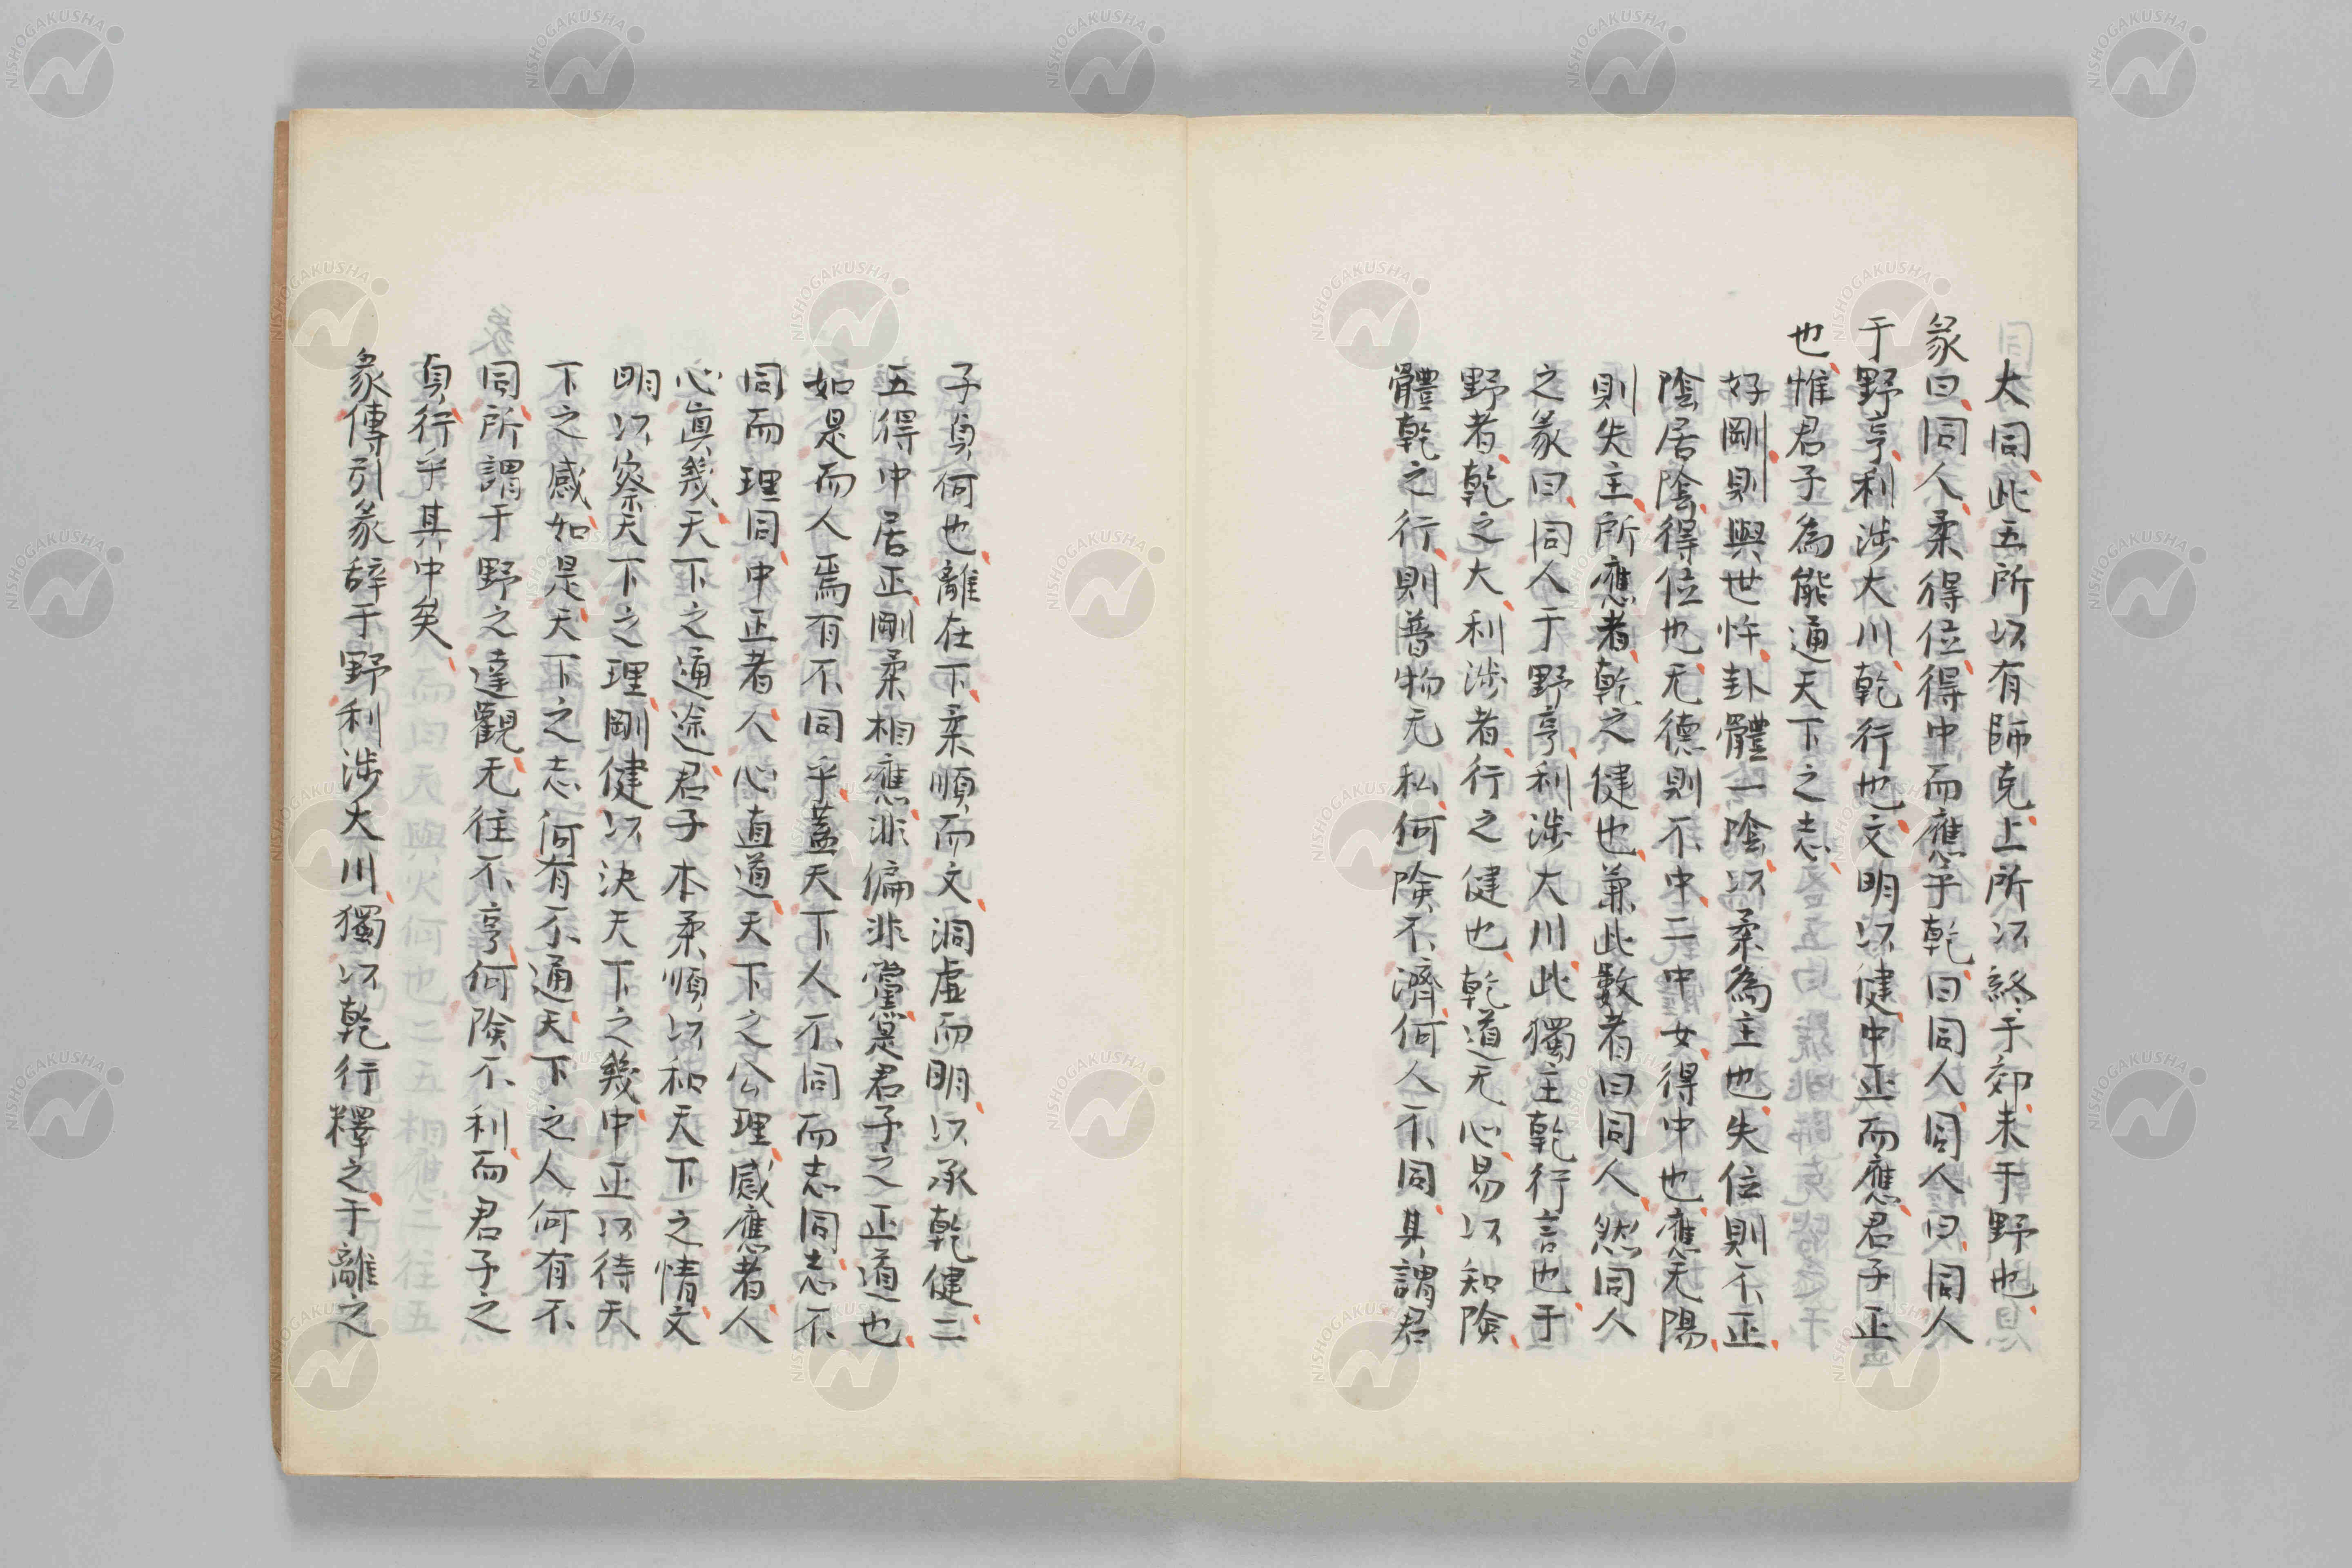 大同此五所以有師克上所以終于郊未于野也
彖曰同人柔得位得中而應乎乾曰同人同人曰同人
于野亨利涉大川乾行也文明以健中正而應君子正
也惟君子為能通天下之志
好剛則與世忤卦體一陰以柔為主也失位則不正
陰居陰得位也无德則不中二中女得中也應无陽
則失主所應者乾之健也兼此數者曰同人然同人
之彖曰同人于野亨利涉大川此獨主乾行言也于
野者乾之大利涉者行之健也乾道无心易以知險
體乾之行則普物无私何險不濟何人不同其謂君
子貞何也離在下柔順而文洞虛而明以承乾健二
五得中居正剛柔相應非偏非黨是君子之正道也
如是而人焉有不同乎蓋天下人不同而志同志不
同而理同中正者人心直道天下之公理感應者人
心真幾天下之通途君子本柔順以和天下之情文
明以察天下之理剛健以決天下之幾中正以待天
下之感如是天下之志何有不通天下之人何有不
同所謂于野之達觀无往不亨何險不利而君子之
貞行乎其中矣
彖傳引彖辭于野利涉大川獨以乾行釋之于離之
NISHOGAKUSHA